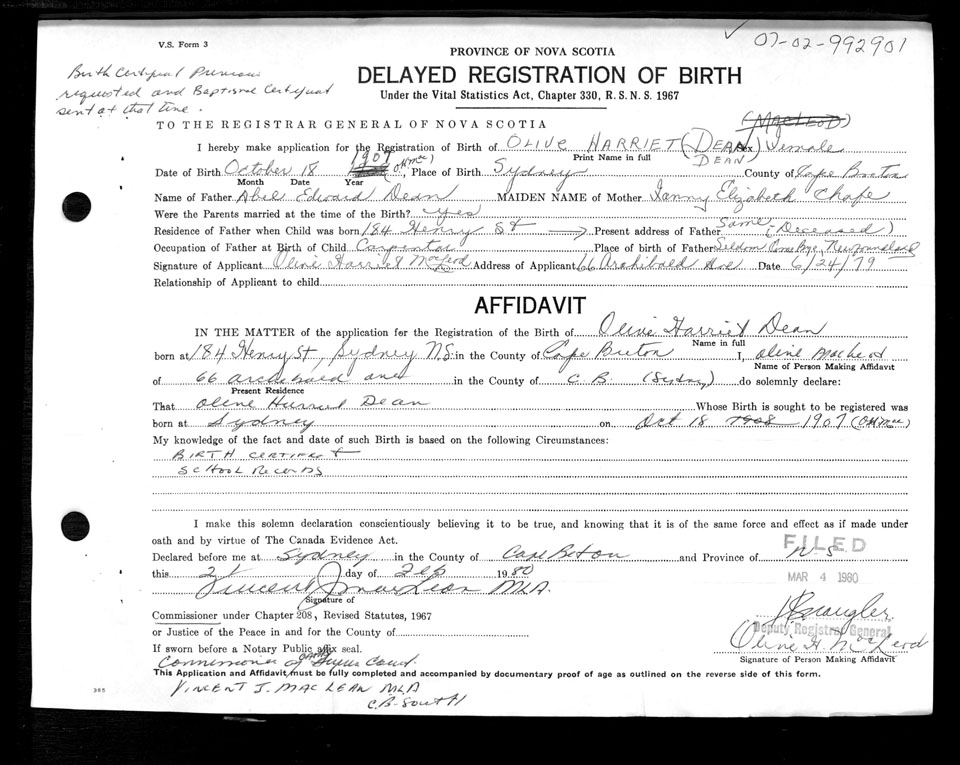 V.S. Form 3
07-02-992901
PROVINCE OF NOVA SCOTIA
DELAYED REGISTRATION OF BIRTH
Under the Vital Statistics Act, Chapter 330, R. S. N. S. 1967
requested and Baptismal Certificat
sent at that time.
(MacLEOD)
TO THE REGISTRAR GENERAL OF NOVA SCOTIA
I hereby make application for the Registration of Birth of OLIVE HARRIET (DEAN) Sex Female
Print Name in full DEAN
1907
Date of Birth October 18 (OHMac), Place of Birth Sydney County of Cape Breton
Month Date Year
Name of Father Abel Edward Dean MAIDEN NAME of Mother Fanny Elizabeth
Were the Parents married at the time of the Birth? yes
Same (Deceased)
Residence of Father when Child was born 184 Henry St Present address of Father
Occupation of Father at Birth of Child Carpenter Place of birth of Father Seldom Come Bye, Newfoundland
Signature of Applicant Olive Harriet MacLeod Address of Applicant 66 Archibald Ave Date 6/24/79
Relationship of Applicant to child
AFFIDAVIT
IN THE MATTER of the application for the Registration of the Birth of Olive Harriet Dean
Name in full
born at 184 Henry St, Sydney N.S. in the County of Cape Breton I, Olive MacLeod
Name of Person Making Affidavit
of 66 Archibald ave in the County of C. B. (Sydney) do solemnly declare:
Present Residence
That Olive Harriet Dean Whose Birth is sought to be registered was
born at Sydney on Oct 18 1908 1907 (OHMac)
My knowledge of the fact and date of such Birth is based on the following Circumstances:
BIRTH CERTIFICAT
SCHOOL RECORDS
I make this solemn declaration conscientiously believing it to be true, and knowing that it is of the same force and effect as if made under
oath and by virtue of The Canada Evidence Act.
Declared before me at Sydney in the County of Cape Breton and Province of N S
FILED
this day of Feb 1980
MAR 4 1980
Vincent J. MacLean MLA.
Signature of
Commissioner under Chapter 208, Revised Statutes, 1967
or Justice of the Peace in and for the County of
Deputy Registrar General
If sworn before a Notary Public affix seal.
Olive H. McLeod
Commissioner of Court.
Signature of Person Making Affidavit
This Application and Affidavit must be fully completed and accompanied by documentary proof of age as outlined on the reverse side of this form.
385
VINCENT J. MACLEAN MLA
C.B. SOUTH